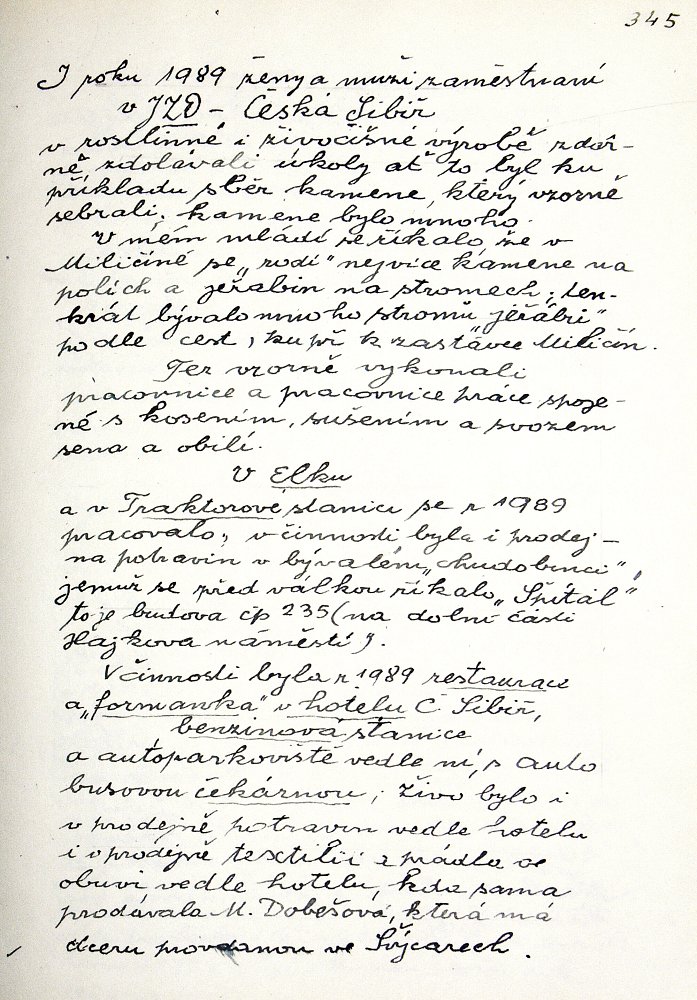 345
I roku 1989 ženy a muži zaměstnaní
v JZD – Česká Sibiř
v rostlinné i živočišné výrobě zdár-
ně zdolávali úkoly ať to byl ku
příkladu sběr kamene, který vzorně
sebrali; kamene bylo mnoho.
V mém mládí se říkalo, že v
Miličíně se „rodí" nejvíce kamene na
polích a jeřabin na stromech; ten-
krát bývalo mnoho stromů „jeřábů"
podle cest, ku př k zastávce Miličín.
Též vzorně vykonali
pracovnice a pracovnice práce spoje-
né s kosením, sušením a svozem
sena a obilí.
V Elku
a v Traktorové stanici se r 1989
pracovalo; v činnosti byla i prodej-
na potravin v bývalém „chudobinci",
jemuž se před válkou říkalo „Špitál"
to je budova čp 235 (na dolní části
Hájkova náměstí).
V činnosti byla r 1989 restaurace
a „formanka" v hotelu Č Sibiř,
benzinová stanice
a autoparkoviště vedle ní, s auto
busovou čekárnou; živo bylo i
v prodejně potravin vedle hotelu
i v prodejně textilií a prádla ve
obuvi vedle hotelu, kde sama
prodávala M. Dobešová, která má
dceru provdanou ve Švýcarech.